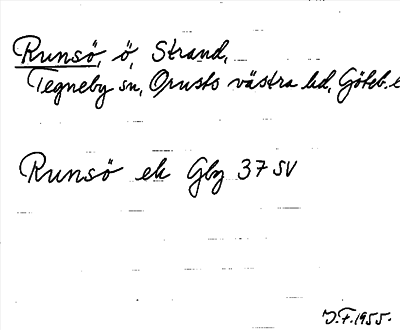 Runsö, ö, Strand,
Tegneby sn, Orusts västra hd, Göteb.
Runsö ek Gbg 37 SV
J.F. 1955.